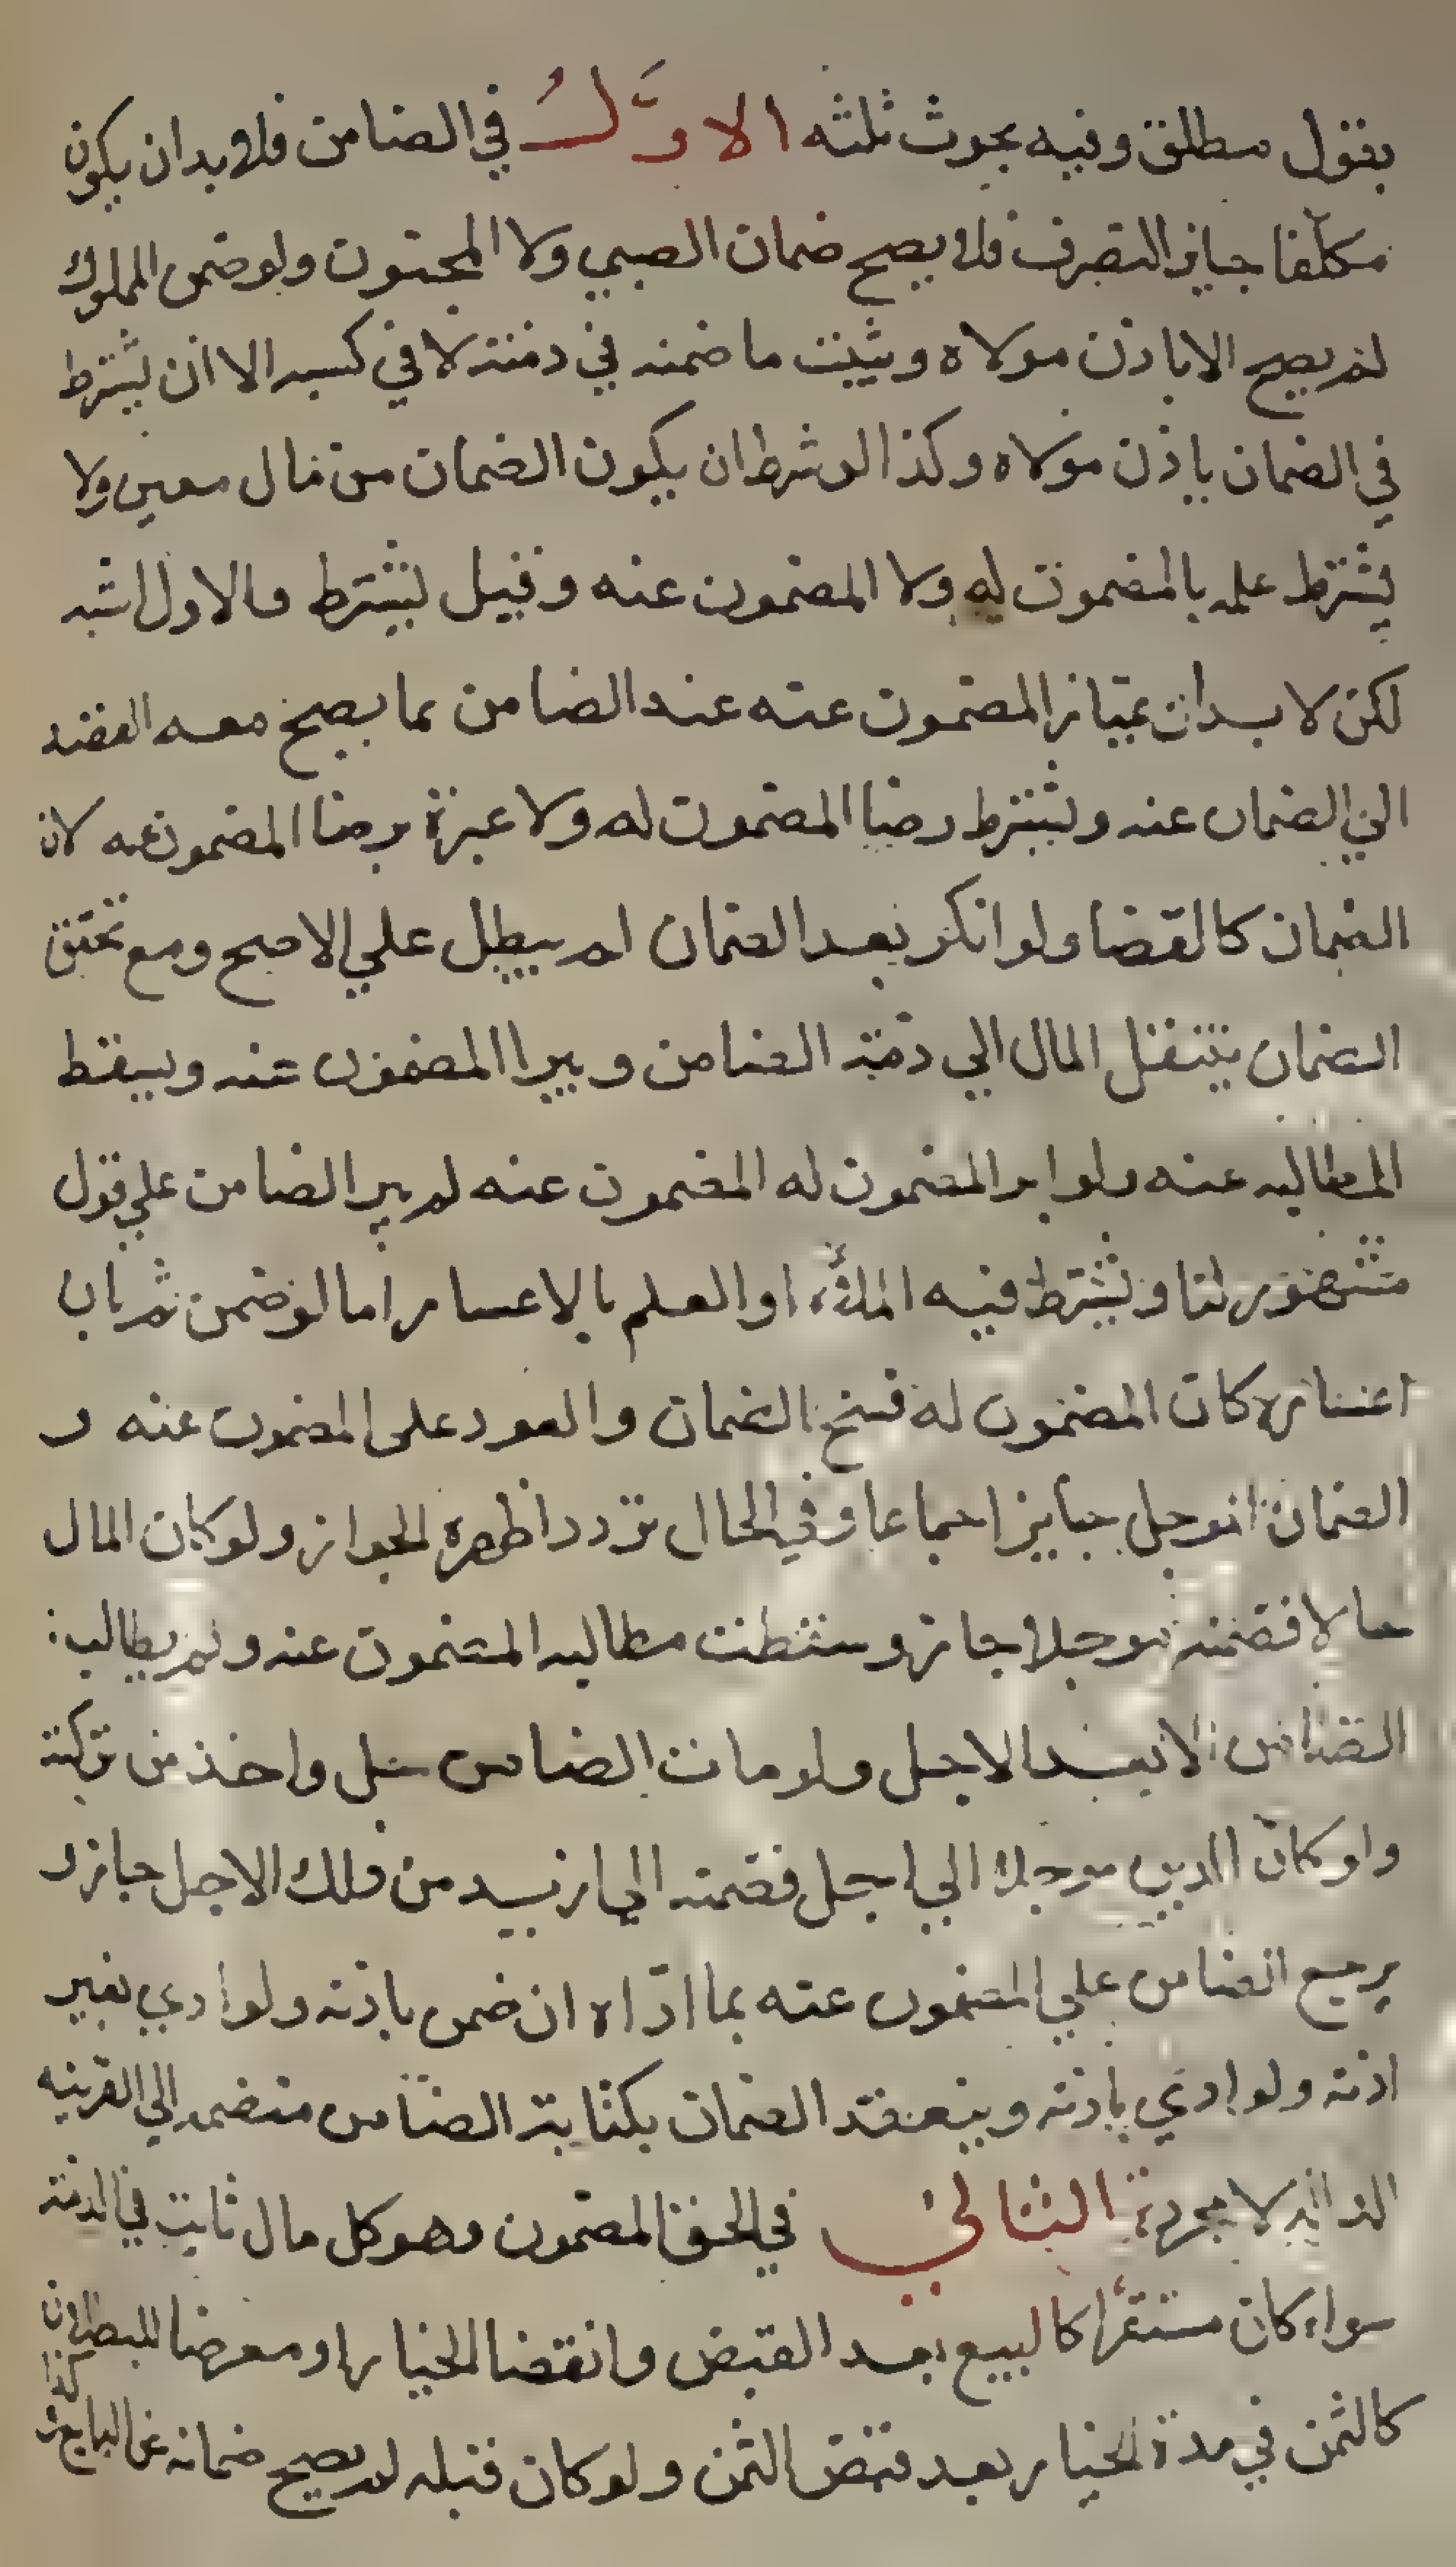 بقول مطلق وفيه بحوث ثلثه الاوَّلُ في الضامن فلا بد ان يكون
مكلّفا جايز التصرف فلا يصح ضمان الصبي ولا المجنون ولو ضمن المملوك
لم يصح الا باذن مولاه ويثبت ما ضمنه في ذمته لا في كسبه الا ان يشترط
في الضمان باذن مولاه وكذا لو شرط ان يكون الضمان من مال معين ولا
يشترط علمه بالمضمون له ولا المضمون عنه وقيل يشترط والاول اشبه
لكن لا بد ان يمتاز المضمون عنه عند الضامن بما يصح معه القصد
الي الضمان عنه ويشترط رضا المضمون له ولا عبرة برضا المضمون عنه لان
الضمان كالقضا ولو انكر بعد الضمان لم يبطل علي الاصح ومع تحقق
الضمان ينتقل المال الي ذمة الضامن ويبرا المضمون عنه ويسقط
المطالبه عنه ولو ابر المضمون له المضمون عنه لم يبر الضامن علي قول
مشهور لنا ويشترط فيه الملاءة او العلم بالاعسار اما لو ضمن ثم بان
اعساره كان المضمون له فسخ الضمان والعود على المضمون عنه و
الضمان الموجل جايز اجماعا وفي الحال تردد اظهره الجواز ولو كان المال
حالا فضمنه موجلا جاز وسقطت مطالبه المضمون عنه ولم يطالب
الضامن الا بعد الاجل ولو مات الضامن حل واخذ من تركته
ولو كان الدين موجلا الي اجل فضمنه الي ازيد من ذلك الاجل جاز و
يرجع الضامن علي المضمون عنه بما ادّاه ان ضمن باذنه ولو ادي بغير
اذنه ولو ادي باذنه وينعقد الضمان بكتابة الضامن منضمه الي القرينه
الداله لا مجردة الثاني في الحق المضمون وهو كل مال ثابت في الذمة
سواء كان مستقرًا كالبيع بعد القبض وانقضا الخيار او معرضا للبطلان
كالثمن في مدة الخيار بعد قبض الثمن ولو كان قبله لم يصح ضمانه عن البايع
كذا